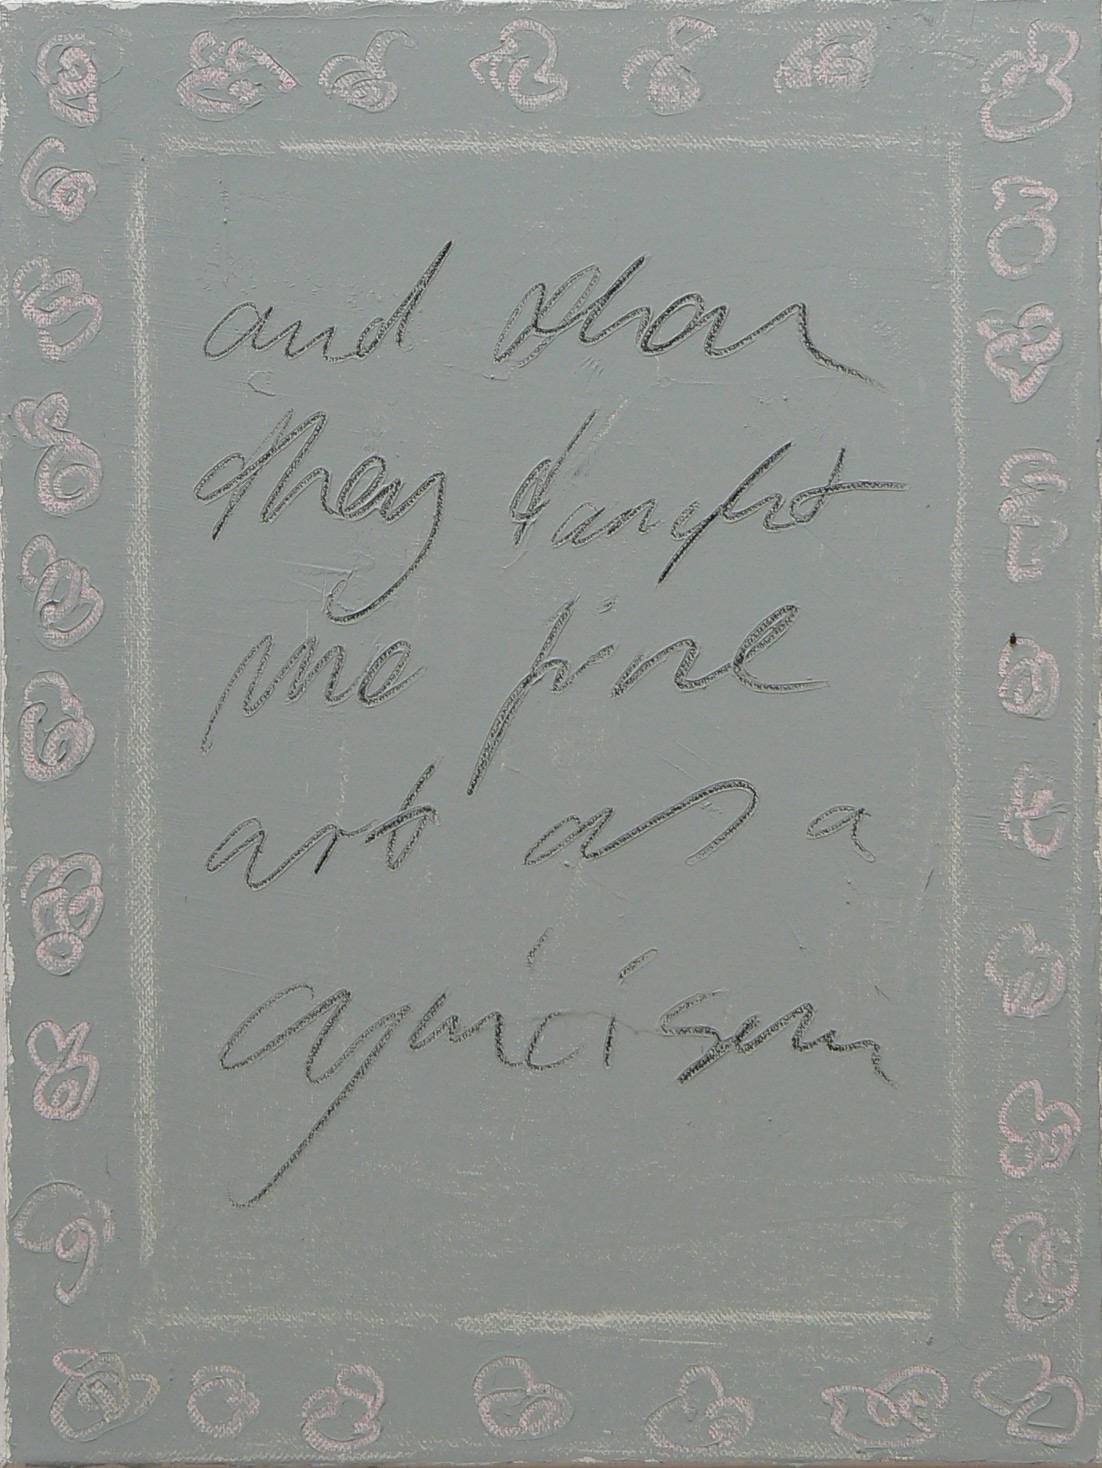 and than
they taught
me fine
art as a
cynicism